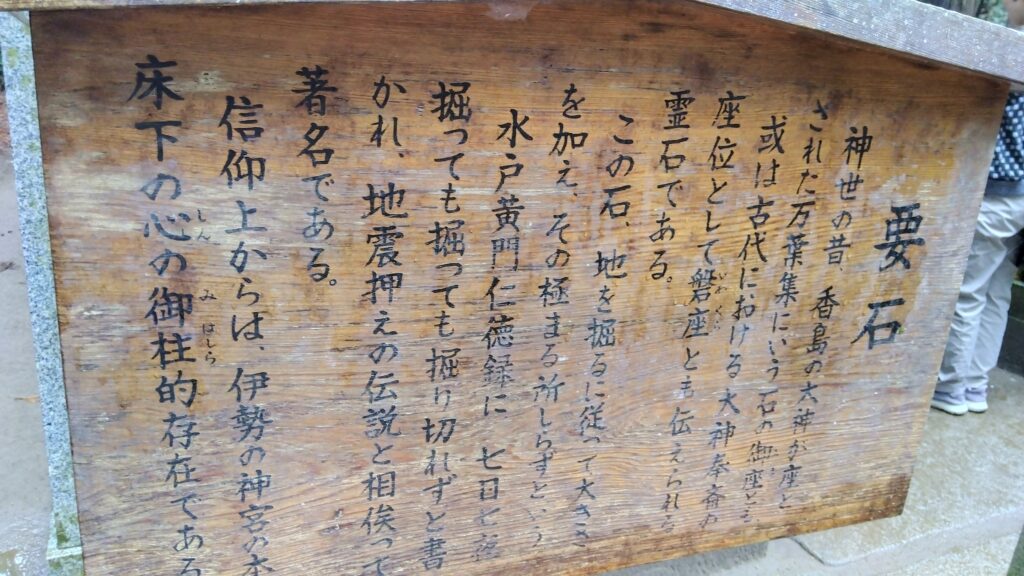 要石
神世の昔、香島の大神が座と
された万葉集にいう石の御座とも
或は古代における大神奉斎の
座位として磐座とも伝えられる
霊石である。
この石、地を掘るに従って大きさ
を加え、その極まる所しらずという
水戸黄門仁徳録に七日七夜
掘っても掘っても掘り切れずと書
かれ、地震押えの伝説と相俟って
著名である。
信仰上からは、伊勢の神宮の本
床下の心の御柱的存在である
しん
み
はしら